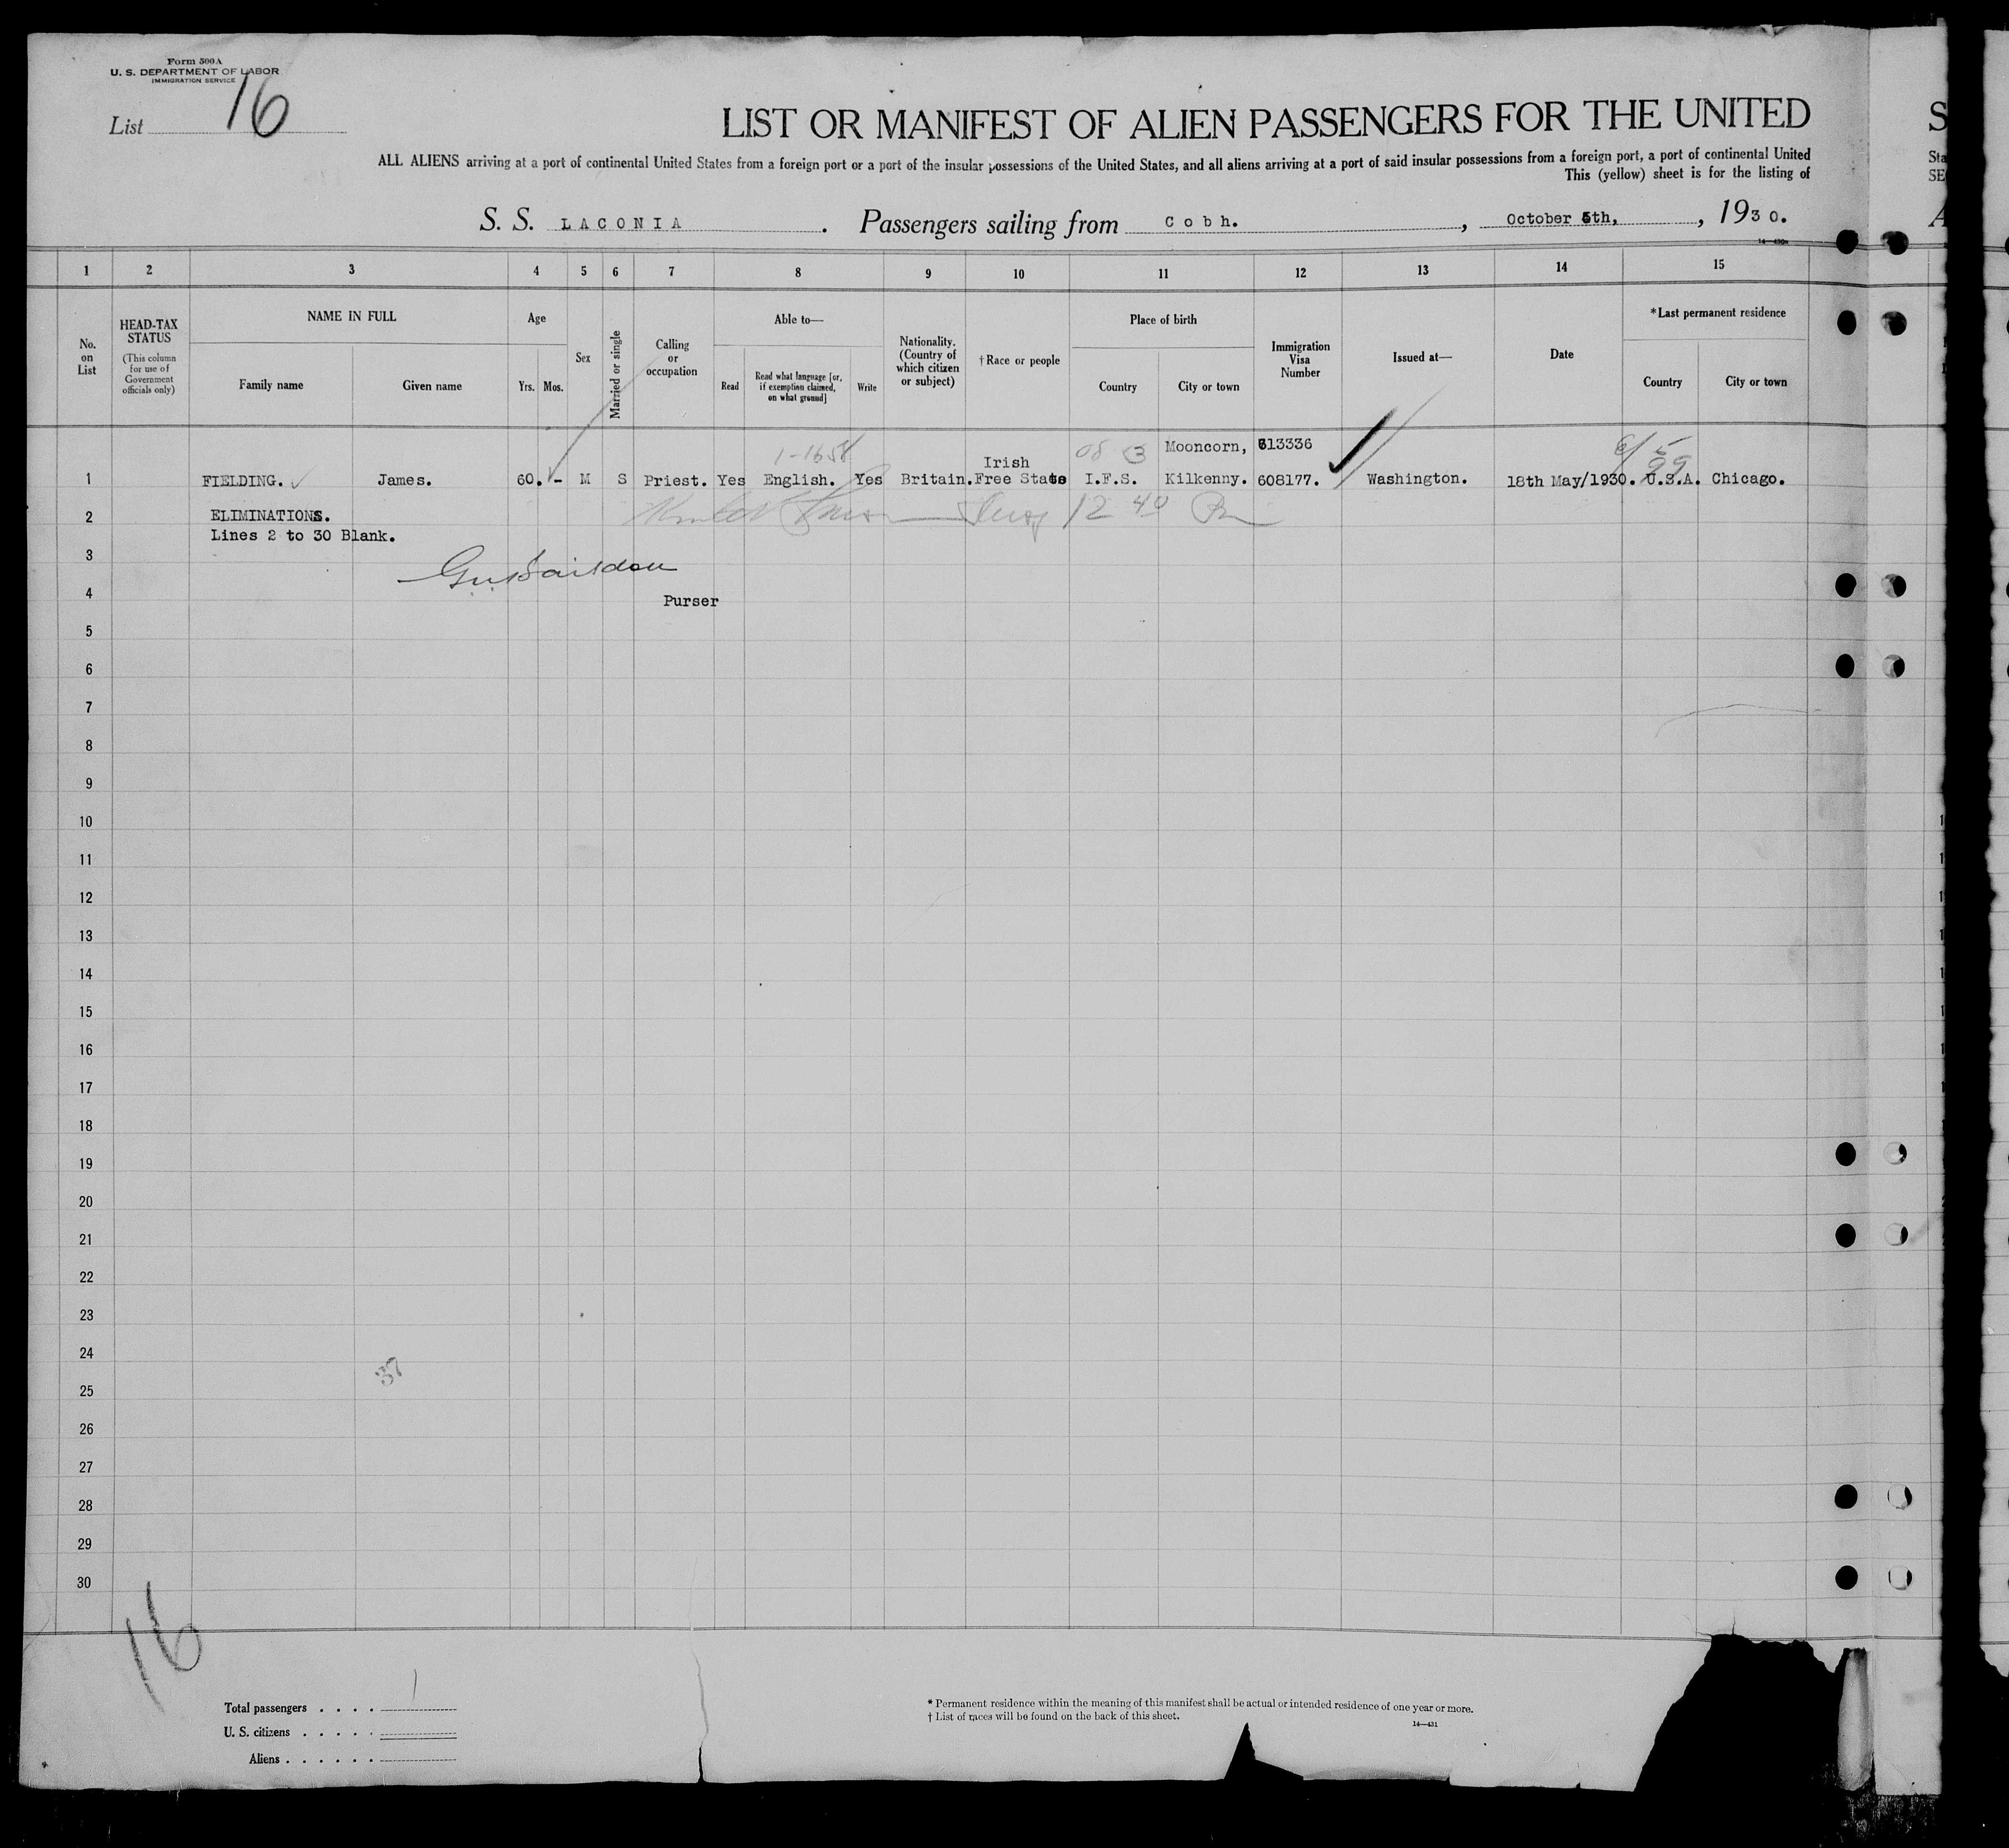 Form 500A
U. S. DEPARTMENT OF LABOR
IMMIGRATION SERVICE
List 16
LIST OR MANIFEST OF ALIEN PASSENGERS FOR THE UNITED
ALL ALIENS arriving at a port of continental United States from a foreign port or a port of the insular possessions of the United States, and all aliens arriving at a port of said insular possessions from a foreign port, a port of continental United
This (yellow) sheet is for the listing of
S. S. LACONIA. Passengers sailing from Cobh., October 5th, , 1930.
14—430a
1 2 3 4 5 6 7 8 9 10 11 12 13 14 15
No. on List
HEAD-TAX STATUS
(This column for use of Government officials only)
NAME IN FULL
Family name Given name
Age
Yrs. Mos.
Sex
Married or single
Calling or occupation
Able to—
Read
Read what language [or, if exemption claimed, on what ground]
Write
Nationality. (Country of which citizen or subject)
†Race or people
Place of birth
Country City or town
Immigration Visa Number
Issued at—
Date
*Last permanent residence
Country City or town
Mooncorn, 613336
Irish
1 FIELDING. James. 60. - M S Priest. Yes English. Yes Britain. Free State I.F.S. Kilkenny. 608177. Washington. 18th May/1930. U.S.A. Chicago.
2 ELIMINATIONS.
Lines 2 to 30 Blank.
3
4
Purser
5
6
7
8
9
10
11
12
13
14
15
16
17
18
19
20
21
22
23
24
37
25
26
27
28
29
30
16
Total passengers . . . . 1
U. S. citizens . . . . .
Aliens . . . . . .
* Permanent residence within the meaning of this manifest shall be actual or intended residence of one year or more.
† List of races will be found on the back of this sheet.
14—431